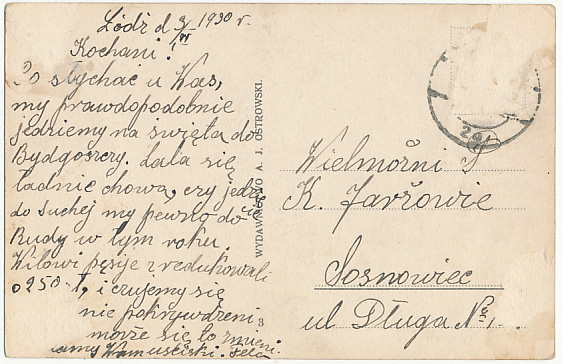 Łódź d 3/IV 1930 r.
Kochani!
Co słychać u Was,
my prawdopodobnie
jedziemy na święta do
Bydgoszczy. Lala się
ładnie chowa, czy jedzie-
cie
do Suchej my pewno do
Rudy w tym roku.
Wilowi pęsje zredukowali
o 250 t, i czujemy się
nie pokrzywdzeni,
może się to zmieni.
Fela
WYDAWNICTWO A. J. OSTROWSKI.
3
29
Wielmożni P
K. Jarżowie
Sosnowiec
ul Długa No 1.